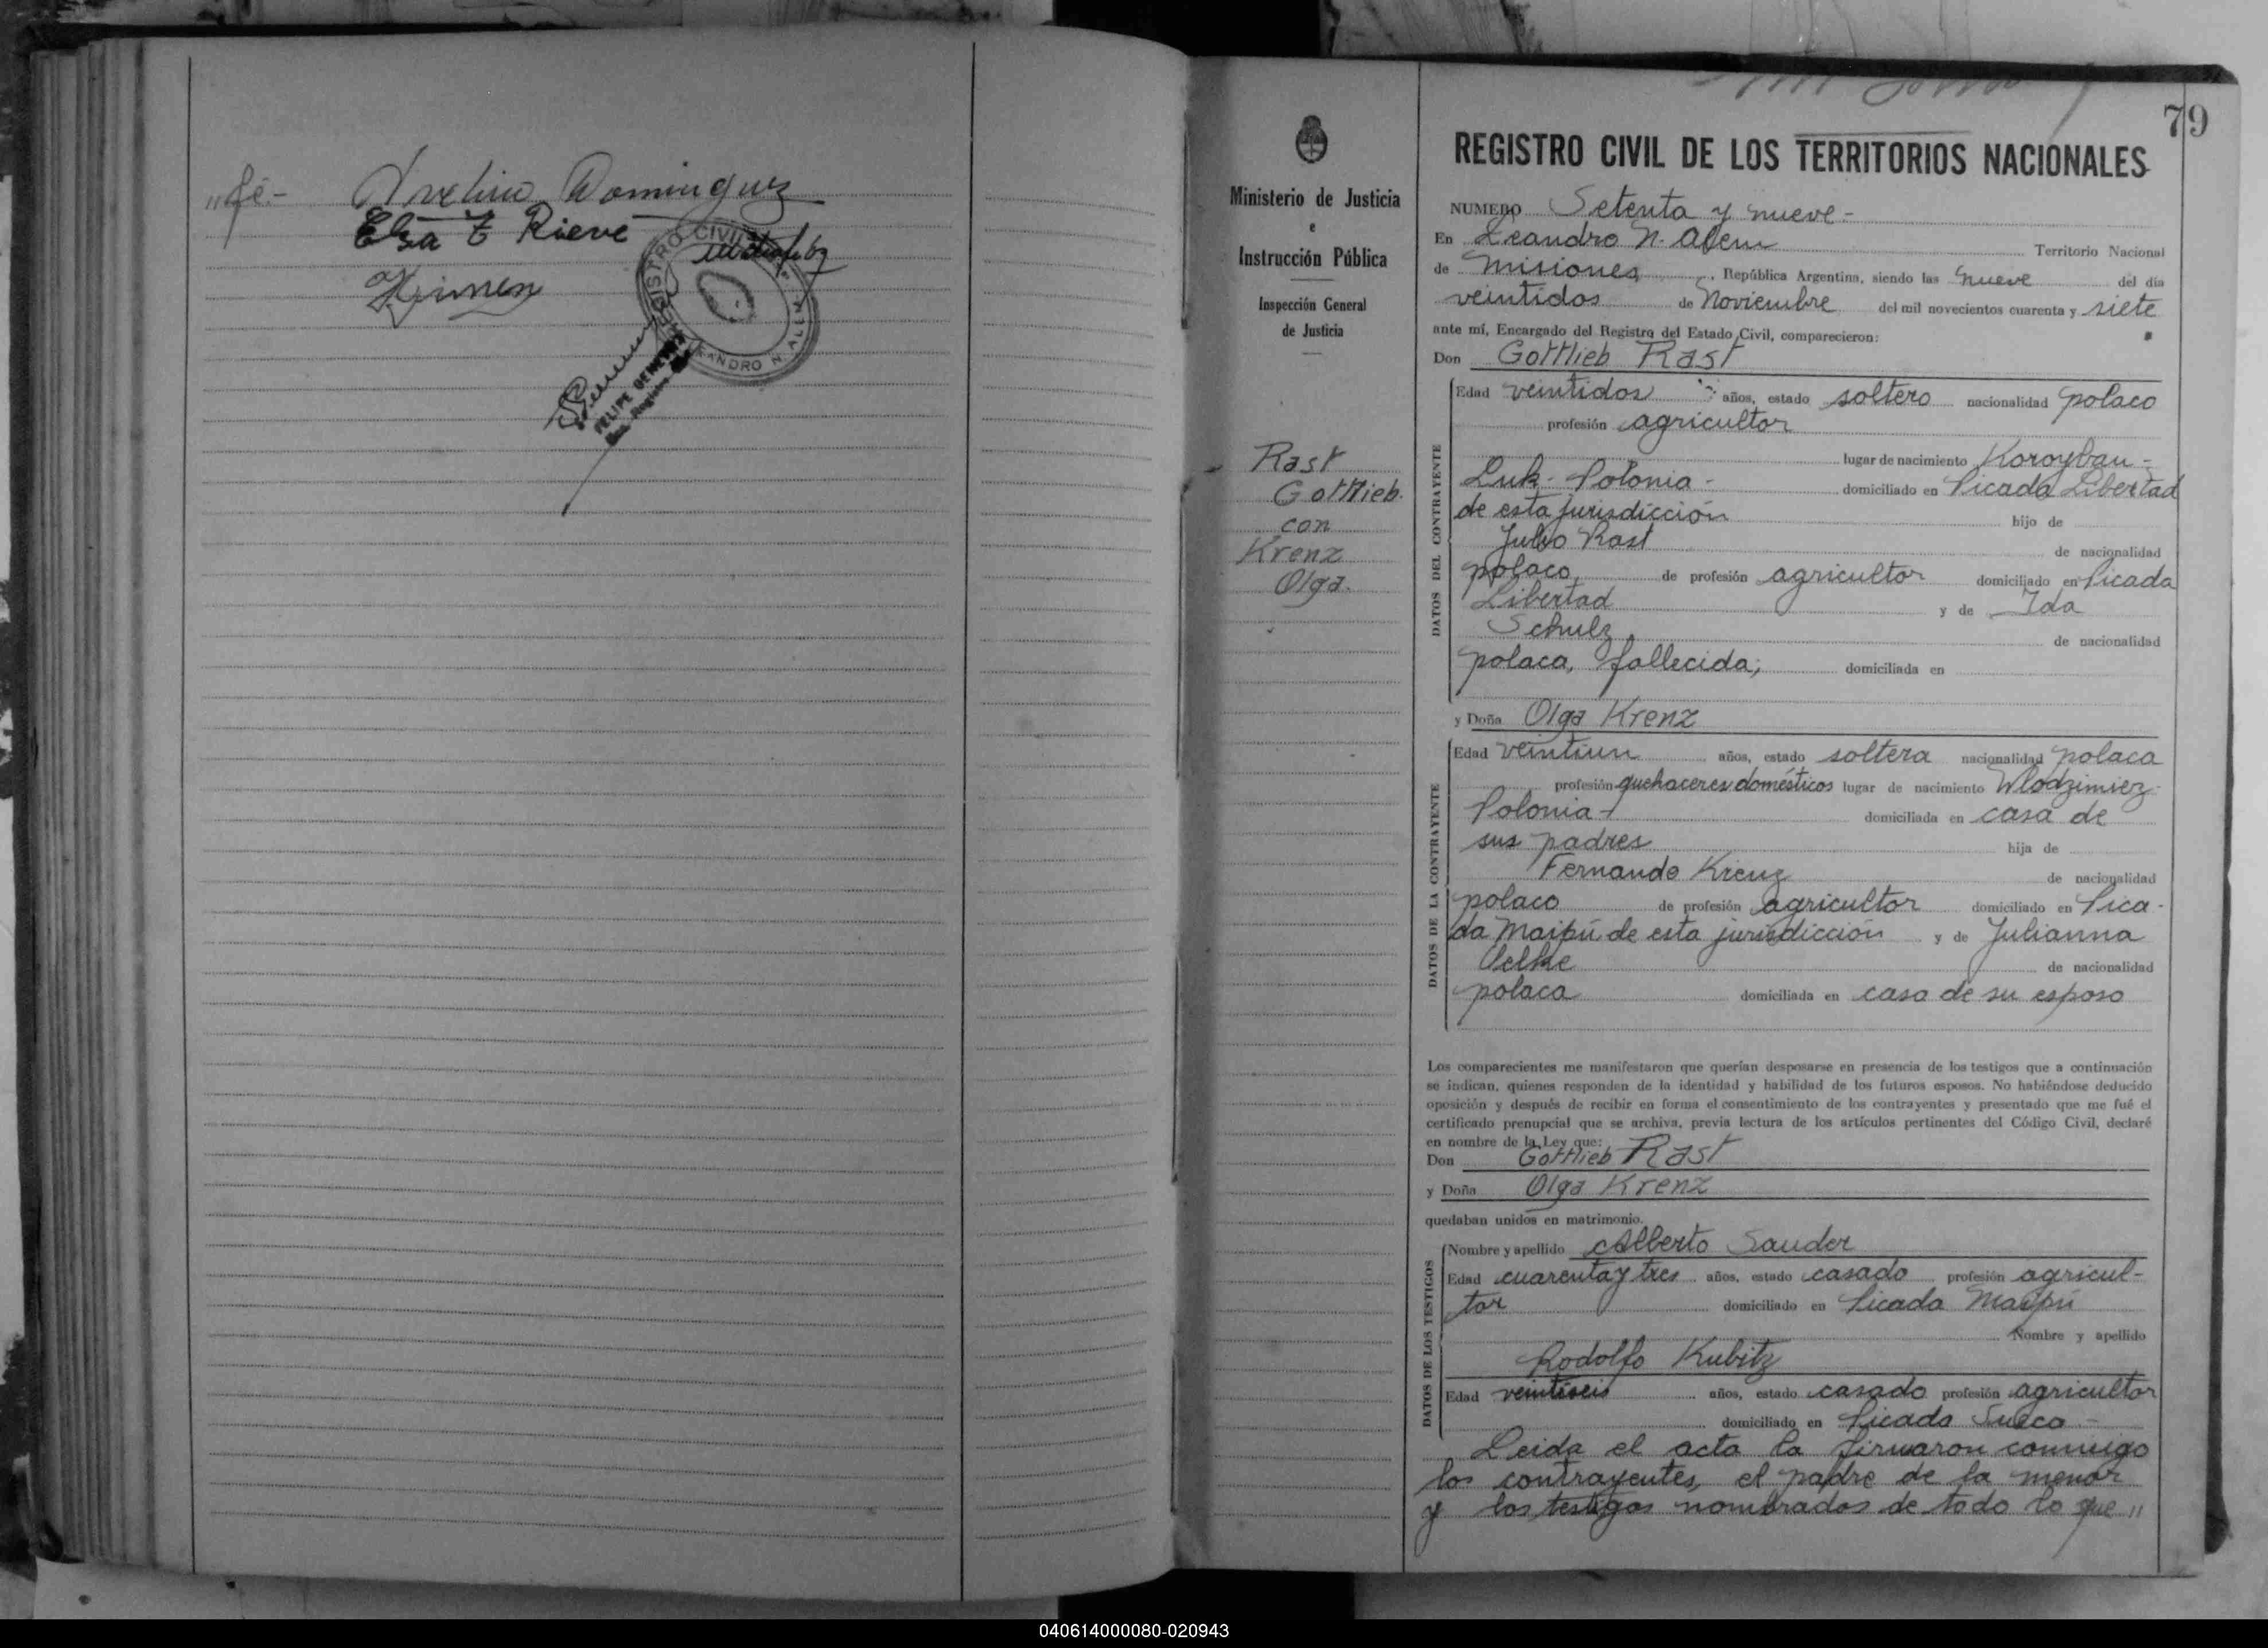 "fé.- Avelino Dominguez
Elsa E Rieve
REGISTRO CIVIL
LEANDRO N. ALEM
FELIPE
79
Ministerio de Justicia
e
Instrucción Pública
Inspección General
de Justicia
Rast
Gottlieb.
con
Krenz
Olga.
REGISTRO CIVIL DE LOS TERRITORIOS NACIONALES
NUMERO Setenta y nueve-
En Leandro N. Alem Territorio Nacional
de Misiones, República Argentina, siendo las nueve del día
veintidos de Noviembre del mil novecientos cuarenta y siete
ante mí, Encargado del Registro del Estado Civil, comparecieron:
Don Gottlieb Rast
DATOS DEL CONTRAYENTE
Edad veintidos años, estado soltero nacionalidad polaco
profesión agricultor
lugar de nacimiento
Luk- Polonia- domiciliado en Picada Libertad
de esta jurisdicción hijo de
Julio Rast de nacionalidad
polaco de profesión agricultor domiciliado en Picada
Libertad y de Ida
Schulz de nacionalidad
polaca, fallecida; domiciliada en
y Doña Olga Krenz
DATOS DE LA CONTRAYENTE
Edad veintiun años, estado soltera nacionalidad polaca
profesión quehaceres domésticos lugar de nacimiento Wlodzimiez-
Polonia- domiciliada en casa de
sus padres hija de
Fernando Krenz de nacionalidad
polaco de profesión agricultor domiciliado en Pica-
da Maipú de esta jurisdicción y de Julianna
Oelke de nacionalidad
polaca domiciliada en casa de su esposo
Los comparecientes me manifestaron que querían desposarse en presencia de los testigos que a continuación
se indican, quienes responden de la identidad y habilidad de los futuros esposos. No habiéndose deducido
oposición y después de recibir en forma el consentimiento de los contrayentes y presentado que me fué el
certificado prenupcial que se archiva, previa lectura de los artículos pertinentes del Código Civil, declaré
en nombre de la Ley que:
Don Gottlieb Rast
y Doña Olga Krenz
quedaban unidos en matrimonio.
DATOS DE LOS TESTIGOS
Nombre y apellido Alberto Sauder
Edad cuarenta y tres años, estado casado profesión agricul-
tor domiciliado en Picada Maipú
Nombre y apellido
Rodolfo Kubitz
Edad veintiseis años, estado casado profesión agricultor
domiciliado en Picada Sueca-
Leida el acta la firmaron conmigo
los contrayentes, el padre de la menor
y los testigos nombrados de todo lo que "
040614000080-020943